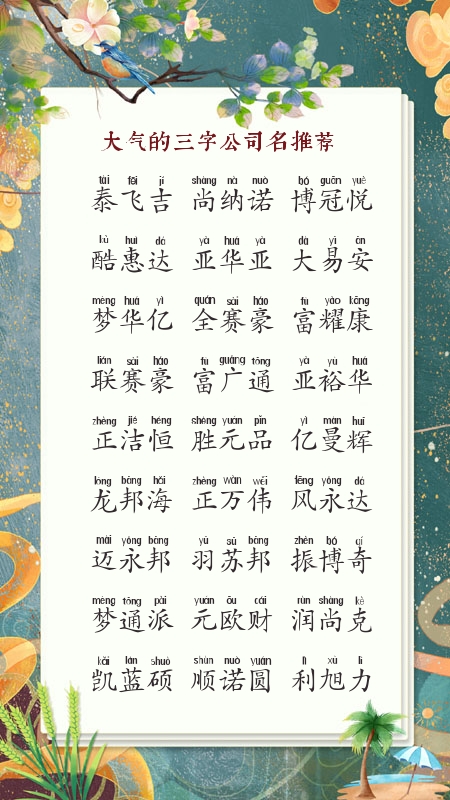 大气的三字公司名推荐
tài fēi jí shàng nà nuò bó guān yuè
泰飞吉 尚纳诺 博冠悦
kù huì dá yà huá yà dà yì ān
酷惠达 亚华亚 大易安
mèng huá yì quán sài háo fù yào kāng
梦华亿 全赛豪 富耀康
lián sài háo fù guǎng tōng yà yù huá
联赛豪 富广通 亚裕华
zhèng jié héng shèng yuán pǐn yì màn huī
正洁恒 胜元品 亿曼辉
lóng bāng hǎi zhèng wàn wěi fēng yǒng dá
龙邦海 正万伟 风永达
mài yǒng bāng yǔ sū bāng zhèn bó qí
迈永邦 羽苏邦 振博奇
mèng tōng pài yuán ōu cái rùn shàng kè
梦通派 元欧财 润尚克
kǎi lán shuò shùn nuò yuán lì xù lì
凯蓝硕 顺诺圆 利旭力